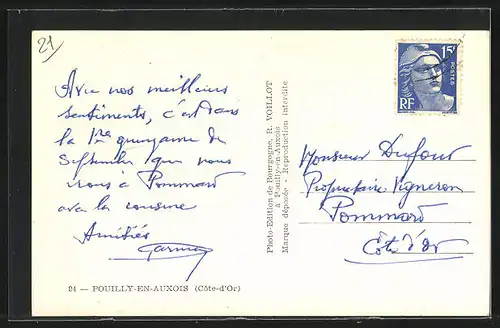 21
Avec nos meilleurs
sentiments, c'est dans
la 1ère quinzaine de
Septembre que nous
irons à Pommard
avec la cousine
Amitiés
Photo-Edition de Bourgogne, R. VOILLOT
à Pouilly-en-Auxois
Marque déposée - Reproduction interdite
15F
POSTES
RF
Monsieur Dufour
Propriétaire Vigneron
Pommard
Côte d'Or
24 — POUILLY-EN-AUXOIS (Côte-d'Or)